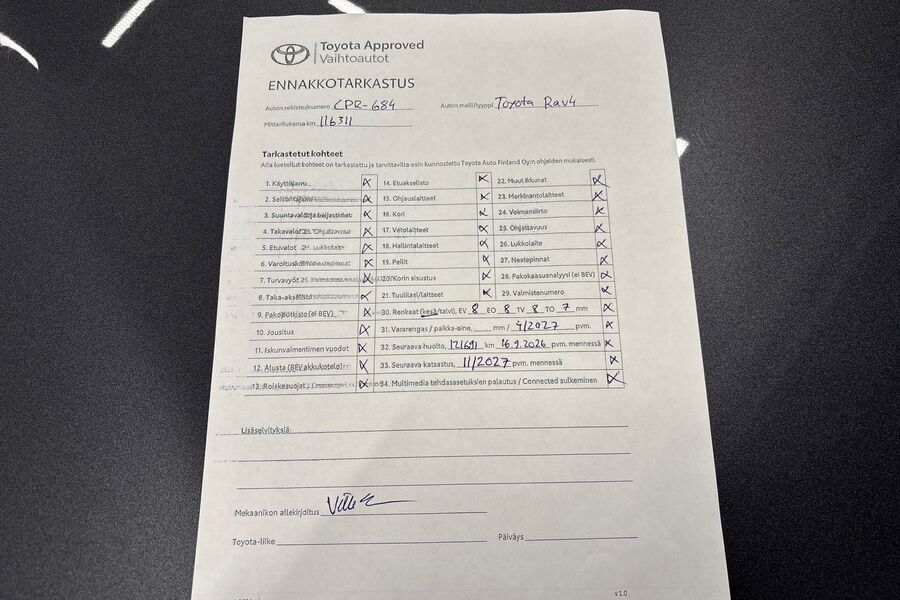 Toyota Approved
Vaihtoautot
ENNAKKOTARKASTUS
Auton rekisterinumero CPR-684 Auton malli/tyyppi Toyota Rav4
Mittarilukema km 116311
Tarkastetut kohteet
Alla luetellut kohteet on tarkastettu ja tarvittavilta osin kunnostettu Toyota Auto Finland Oy:n ohjeiden mukaisesti.
1. Käyttöjarru X 14. Etuakselisto X 22. Muut ikkunat X
2. Seisontajarru X 15. Ohjauslaitteet X 23. Merkinantolaitteet X
3. Suuntavalot ja heijastimet X 16. Kori X 24. Voimansiirto X
4. Takavalot X 17. Vetolaitteet X 25. Ohjattavuus X
5. Etuvalot X 18. Hallintalaitteet X 26. Lukkolaite X
6. X 19. Peilit X 27. Nestepinnat X
7. Turvavyöt X 20. Korin sisustus X 28. Pakokaasuanalyysi (ei BEV) X
8. Taka-akselisto X 21. Tuulilasi/laitteet X 29. Valmistenumero X
9. Pakoputkisto (ei BEV) X 30. Renkaat (kesä/talvi), EV 8 EO 8 TV 8 TO 7 mm X
10. Jousitus X 31. Vararengas / paikka-aine, mm / 4/2027 pvm. X
11. Iskunvaimentimen vuodot X 32. Seuraava huolto, 121691 km 16.9.2026 pvm. mennessä X
12. Alusta (BEV akkukotelo) X 33. Seuraava katsastus, 11/2027 pvm. mennessä X
13. Roiskesuojat X 34. Multimedia tehdasasetuksien palautus / Connected sulkeminen X
Lisäselvityksiä:
Mekaanikon allekirjoitus
Toyota-liike Päiväys
v 1.0